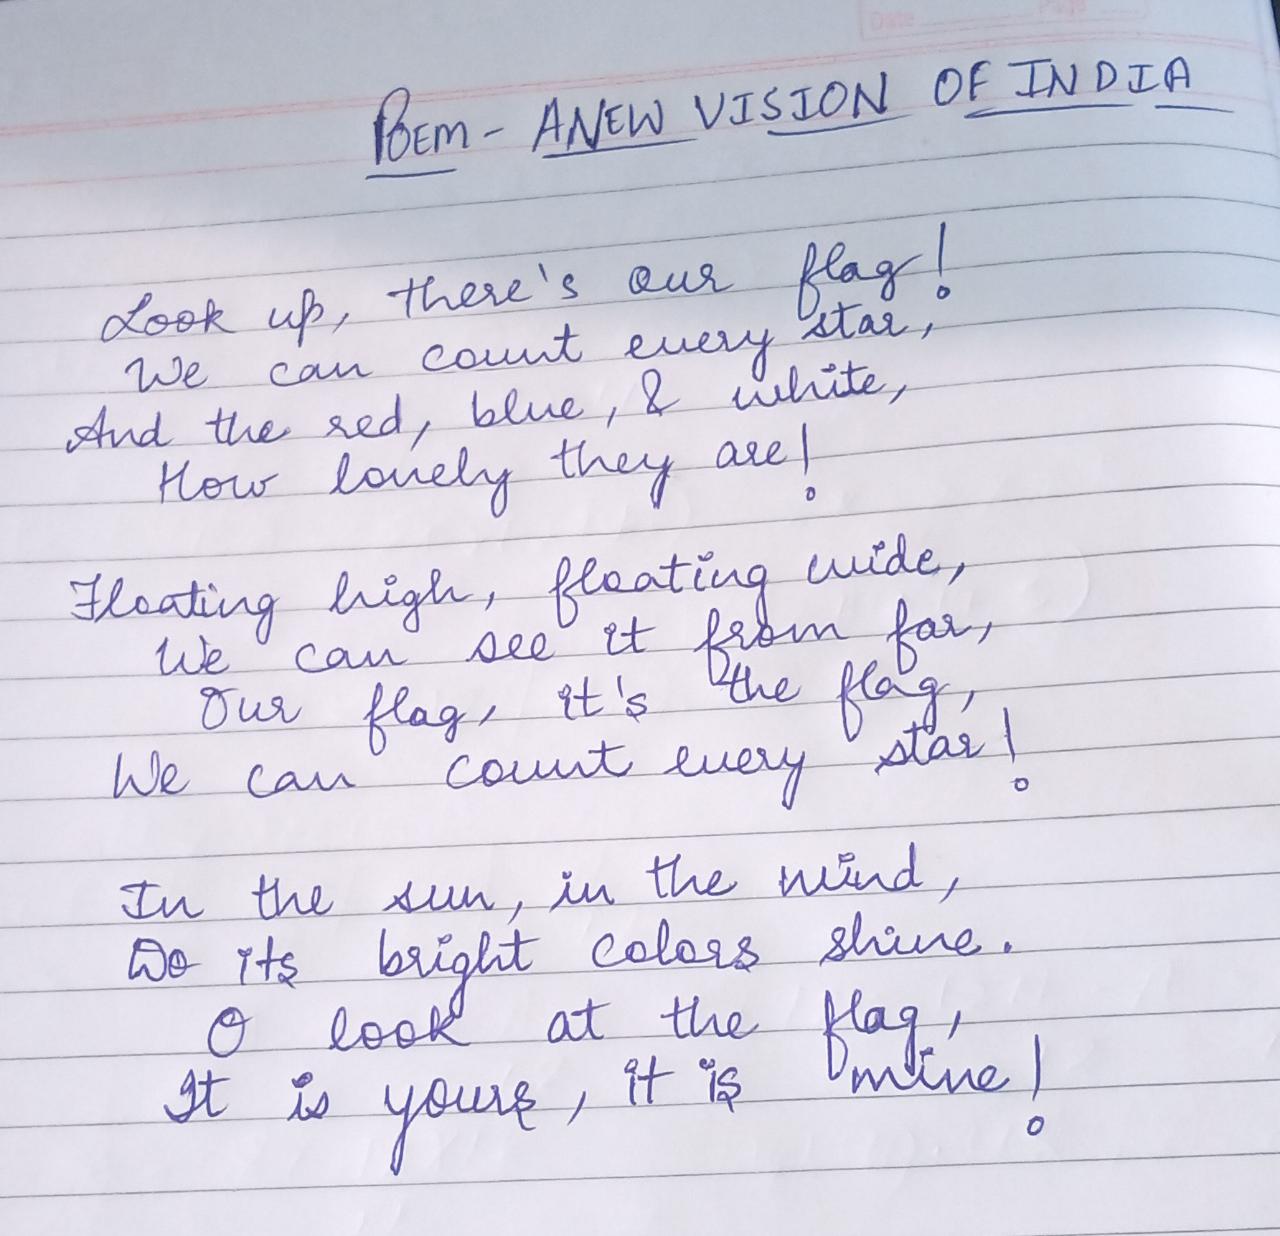 Date Page
POEM - A NEW VISION OF INDIA
Look up, there's our flag!
We can count every star,
And the red, blue, & white,
How lovely they are!
Floating high, floating wide,
We can see it from far,
Our flag, it's the flag,
We can count every star!
In the sun, in the wind,
Do its bright colors shine.
O look at the flag,
It is yours, it is mine!